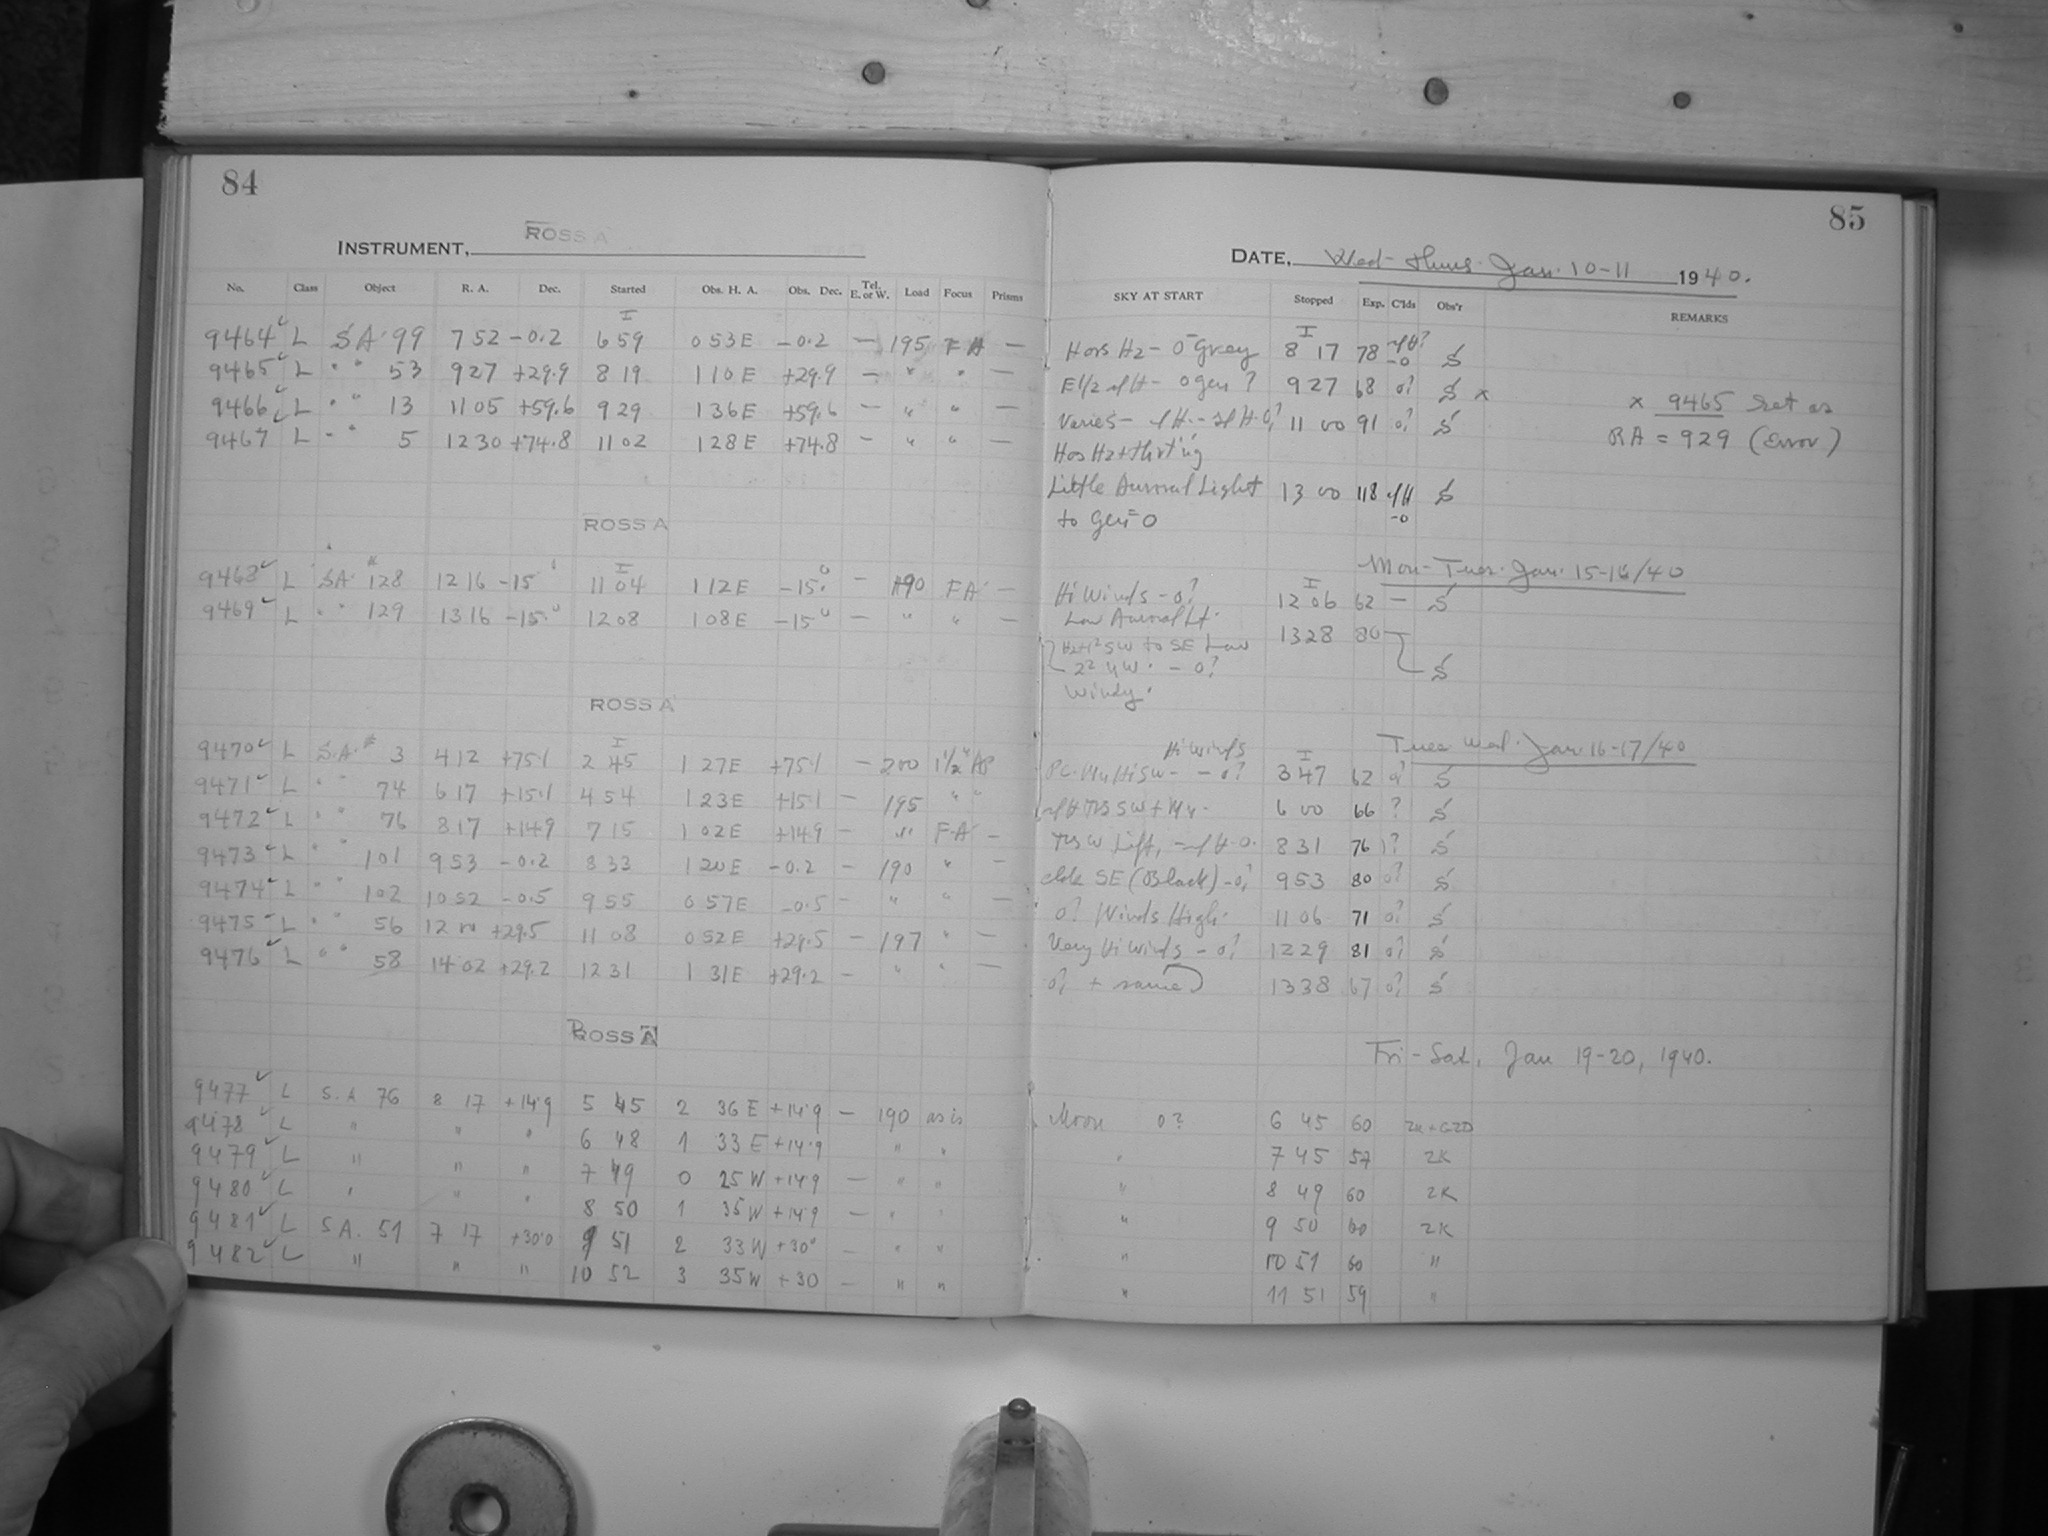 84
INSTRUMENT, ROSS A
No. Class Object R. A. Dec. Started Obs. H. A. Obs. Dec. Tel. E. or W. Load Focus Prisms
9464 L SA 99 7 52 -0.2 6 59 0 53 E -0.2 — 195 FA —
9465 L " " 53 9 27 +29.9 8 19 1 10 E +29.9 — " " —
9466 L " " 13 11 05 +59.6 9 29 1 36 E +59.6 — " " —
9467 L " " 5 12 30 +74.8 11 02 1 28 E +74.8 — " " —
ROSS A
9468 L SA 128 12 16 -15° 11 04 1 12 E -15° — 190 FA —
9469 L " " 129 13 16 -15° 12 08 1 08 E -15° — " " —
ROSS A
9470 L S.A. 3 4 12 +75.1 2 45 1 27 E +75.1 — 200 1½" AP
9471 L " " 74 6 17 +15.1 4 54 1 23 E +15.1 — 195 " "
9472 L " " 76 8 17 +14.9 7 15 1 02 E +14.9 — " FA —
9473 L " " 101 9 53 -0.2 8 33 1 20 E -0.2 — 190 " —
9474 L " " 102 10 52 -0.5 9 55 0 57 E -0.5 — " " —
9475 L " " 56 12 +29.5 11 08 0 52 E +29.5 — 197 " —
9476 L " " 58 14 02 +29.2 12 31 1 31 E +29.2 — " " —
ROSS A
9477 L S.A 76 8 17 +14.9 5 45 2 36 E +14.9 — 190 as is
9478 L " " " 6 48 1 33 E +14.9 " "
9479 L " " " 7 49 0 25 W +14.9 — " "
9480 L " " " 8 50 1 35 W +14.9 — " "
9481 L S.A. 51 7 17 +30.0 9 51 2 33 W +30° — " "
9482 L " " " 10 52 3 35 W +30 — " "
85
DATE, Wed-Thurs. Jan. 10-11 1940.
SKY AT START Stopped Exp. C'lds Obs'r REMARKS
Hors Hz - 0 Grey 8 17 78 -0 S
E ½ - 0 gen ? 9 27 68 0? S x
x 9465 Set as
Varies - 11 00 91 0? S
RA = 929 (Error)
Hos Hz +
Little Auroral Light 13 00 118 -0 S
to Gen = 0
Mon-Tues. Jan. 15-16/40
Hi Winds - 0? 12 06 62 — S
Low Auroral Lt. 13 28 80
SW to SE Low
- 0? S
Windy.
Tues Wed. Jan. 16-17/40
Hi Winds
- 0? 3 47 62 0? S
SW + 6 00 66 ? S
Lift, 8 31 76 ? S
SE (Black) - 0? 9 53 80 0? S
0? Winds High. 11 06 71 0? S
Very Hi Winds - 0? 12 29 81 0? S
0? + same 13 38 67 0? S
Fri-Sat, Jan 19-20, 1940.
Moon 0? 6 45 60
" 7 45 57 ZK
" 8 49 60 ZK
" 9 50 60 ZK
" 10 51 60 "
" 11 51 59 "